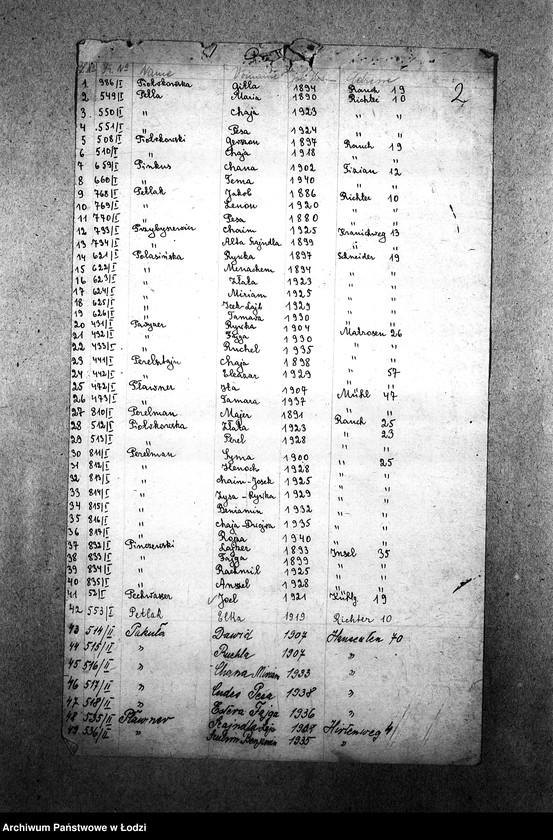 2
Name Adresse
1 986/I Piotrkowska Gitla 1894 Rauch 19
2 549/I Pella Maria 1890 Richter 10
3 550/I " Chaja 1923 " "
4 551/I " Pesa 1924 " "
5 508/I Piotrkowski Gerszon 1897 Rauch 19
6 510/I " Chaja 1918 " "
7 659/I Pinkus Chana 1902 Tizian 12
8 660/I " Tema 1940 " "
9 768/I Petlak Jakob 1886 Richter 10
10 769/I " Zenon 1920 " "
11 770/I " Pesa 1880 " "
12 793/I Chaim 1925 Kranichweg 13
13 794/I " Alta Sajndla 1899 "
14 621/I Polasińska Rywka 1897 Schneider 19
15 622/I " Menachem 1894 " "
16 623/I " Zlata 1923 " "
17 624/I " Miriam 1925 " "
18 625/I " Icek-Lajb 1929 " "
19 626/I " Tamara 1930 " "
20 431/I Rywka 1904 Matrosen 26
21 432/I " Fajga 1930 " "
22 433/I " Ruchel 1935 " "
23 441/I Perelsztajn Chaja 1898 "
24 442/I " Eleazar 1929 " 57
25 472/I Pławner Ita 1907 "
26 473/I " Tamara 1937 Mühl 47
27 810/I Perelman Majer 1891 "
28 512/I Piotrkowska Zlata 1923 Rauch 25
29 513/I " Perel 1928 " 23
30 811/I Perelman Syma 1900 "
31 812/I " Henoch 1928 " 25
32 813/I " Chaim-Josek 1925 " "
33 814/I " Zysa-Rywka 1929 " "
34 815/I " Beniamin 1932 " "
35 816/I " Chaja-Dwojra 1935 " "
36 817/I " Rojza 1940 " "
37 832/I Pinczewski Lajzer 1893 Insel 35
38 833/I " Fajga 1899 " "
39 834/I " Rachmil 1925 " "
40 835/I " Anszel 1928 " "
41 52/I Pechwasser Joel 1921 19
42 553/I Petlak Elka 1919 Richter 10
43 514/II Pakuła Dawid 1907 Hanseaten 70
44 515/II " Ruchla 1907 "
45 516/II " Chana Miriam 1933 "
46 517/II " Pesa 1938 "
47 518/II " Estera Fajga 1936 "
48 535/II Pławner 1908 Hirtenweg 4
49 536/II " Benjamin 1935 "
Archiwum Państwowe w Łodzi